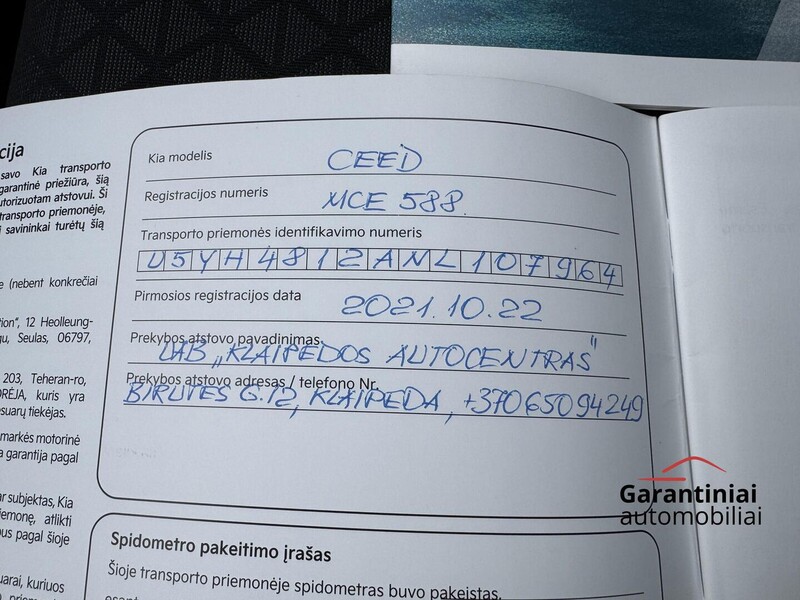 cija
savo Kia transporto
garantinė priežiūra, šią
utorizuotam atstovui. Ši
transporto priemonėje,
savininkai turėtų šią
e (nebent konkrečiai
12 Heolleung-
Seulas, 06797,
203, Teheran-ro,
kuris yra
tiekėjas.
markės motorinė
a garantija pagal
ar subjektas, Kia
atlikti
pagal šioje
kuriuos
Kia modelis CEED
Registracijos numeris MCE 588
Transporto priemonės identifikavimo numeris
U5YH4812ANL107964
Pirmosios registracijos data 2021.10.22
Prekybos atstovo pavadinimas
UAB „KLAIPĖDOS AUTOCENTRAS"
Prekybos atstovo adresas / telefono Nr.
BIRUTĖS G.12, KLAIPĖDA, +37065094249
Spidometro pakeitimo įrašas
Šioje transporto priemonėje spidometras buvo pakeistas,
Garantiniai
automobiliai